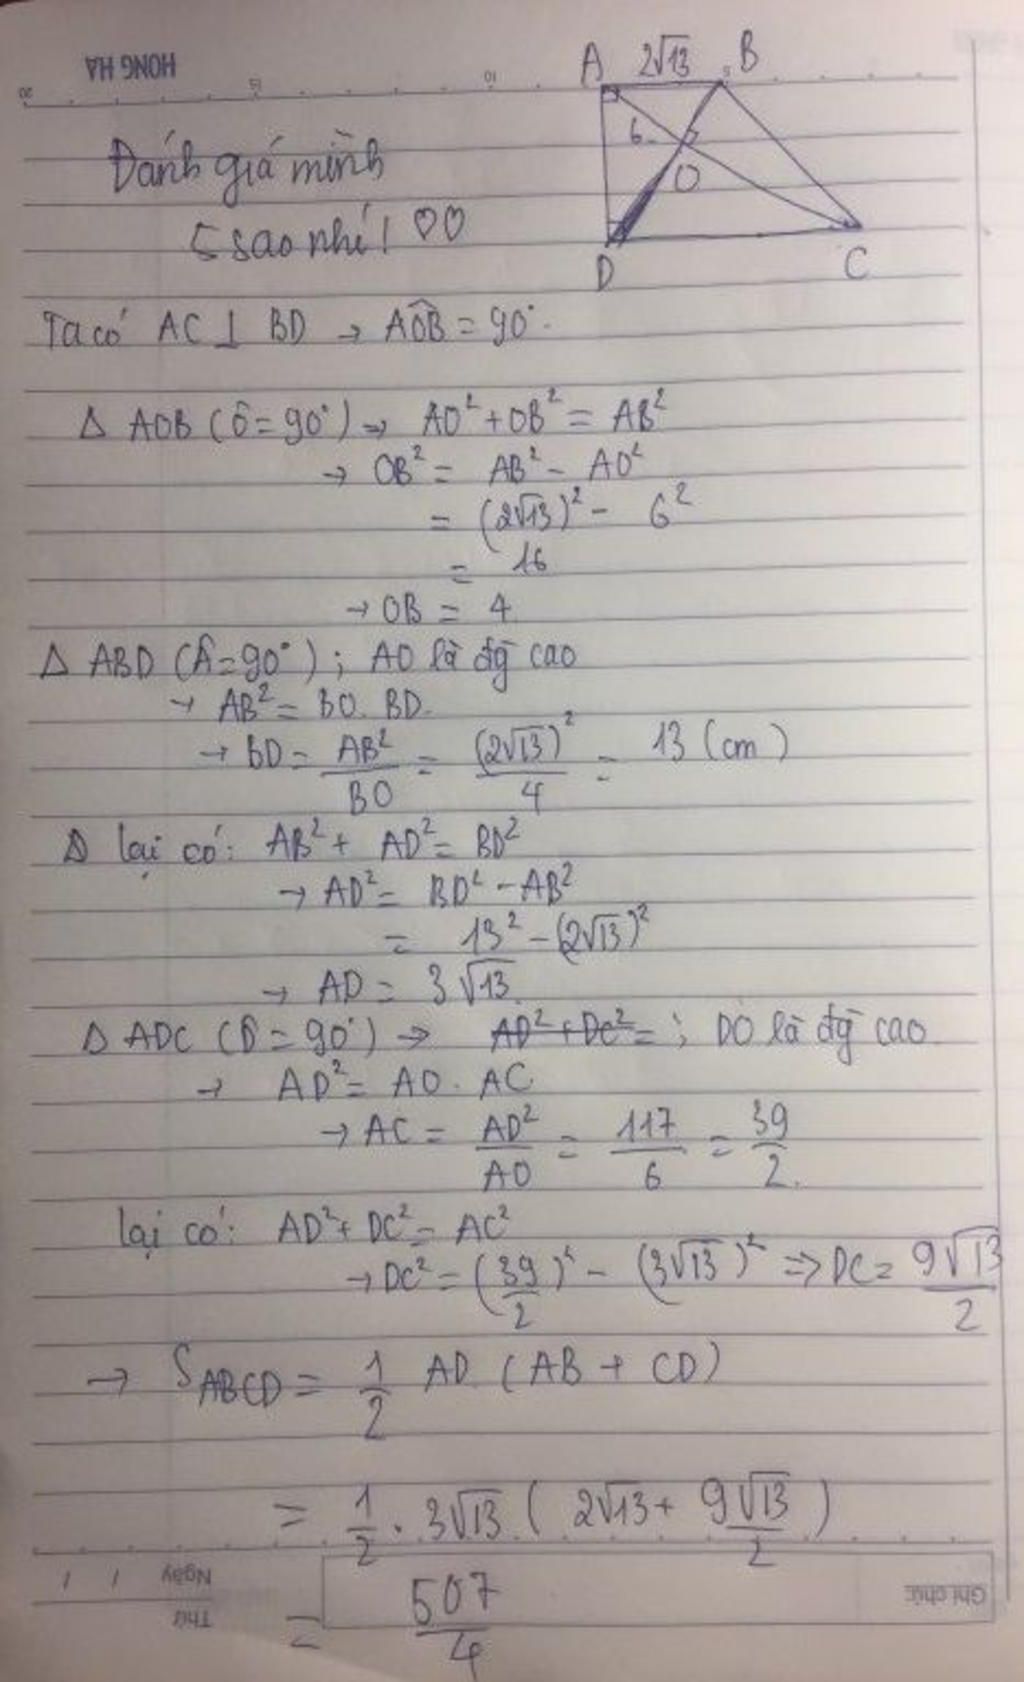 HONG HA
20 15 10 5
A 2√13 B
6
O
D C
Đánh giá mình
5 sao nhé! ♡♡
Ta có AC ⊥ BD → AÔB = 90°.
Δ AOB (Ô = 90°) → AO² + OB² = AB²
→ OB² = AB² - AO²
= (2√13)² - 6²
= 16
→ OB = 4
Δ ABD (Â = 90°) ; AO là đg cao
→ AB² = BO. BD.
→ BD = AB²/BO = (2√13)²/4 = 13 (cm)
Δ lại có: AB² + AD² = BD²
→ AD² = BD² - AB²
= 13² - (2√13)²
→ AD = 3√13.
Δ ADC (D̂ = 90°) → AD² + DC² = ; DO là đg cao
→ AD² = AO. AC
→ AC = AD²/AO = 117/6 = 39/2.
lại có: AD² + DC² = AC²
→ DC² = (39/2)² - (3√13)² => DC = 9√13/2
→ S ABCD = 1/2 AD (AB + CD)
= 1/2 . 3√13 . ( 2√13 + 9√13/2 )
= 507/4
Ngày / /
Thứ
Ghi chú: